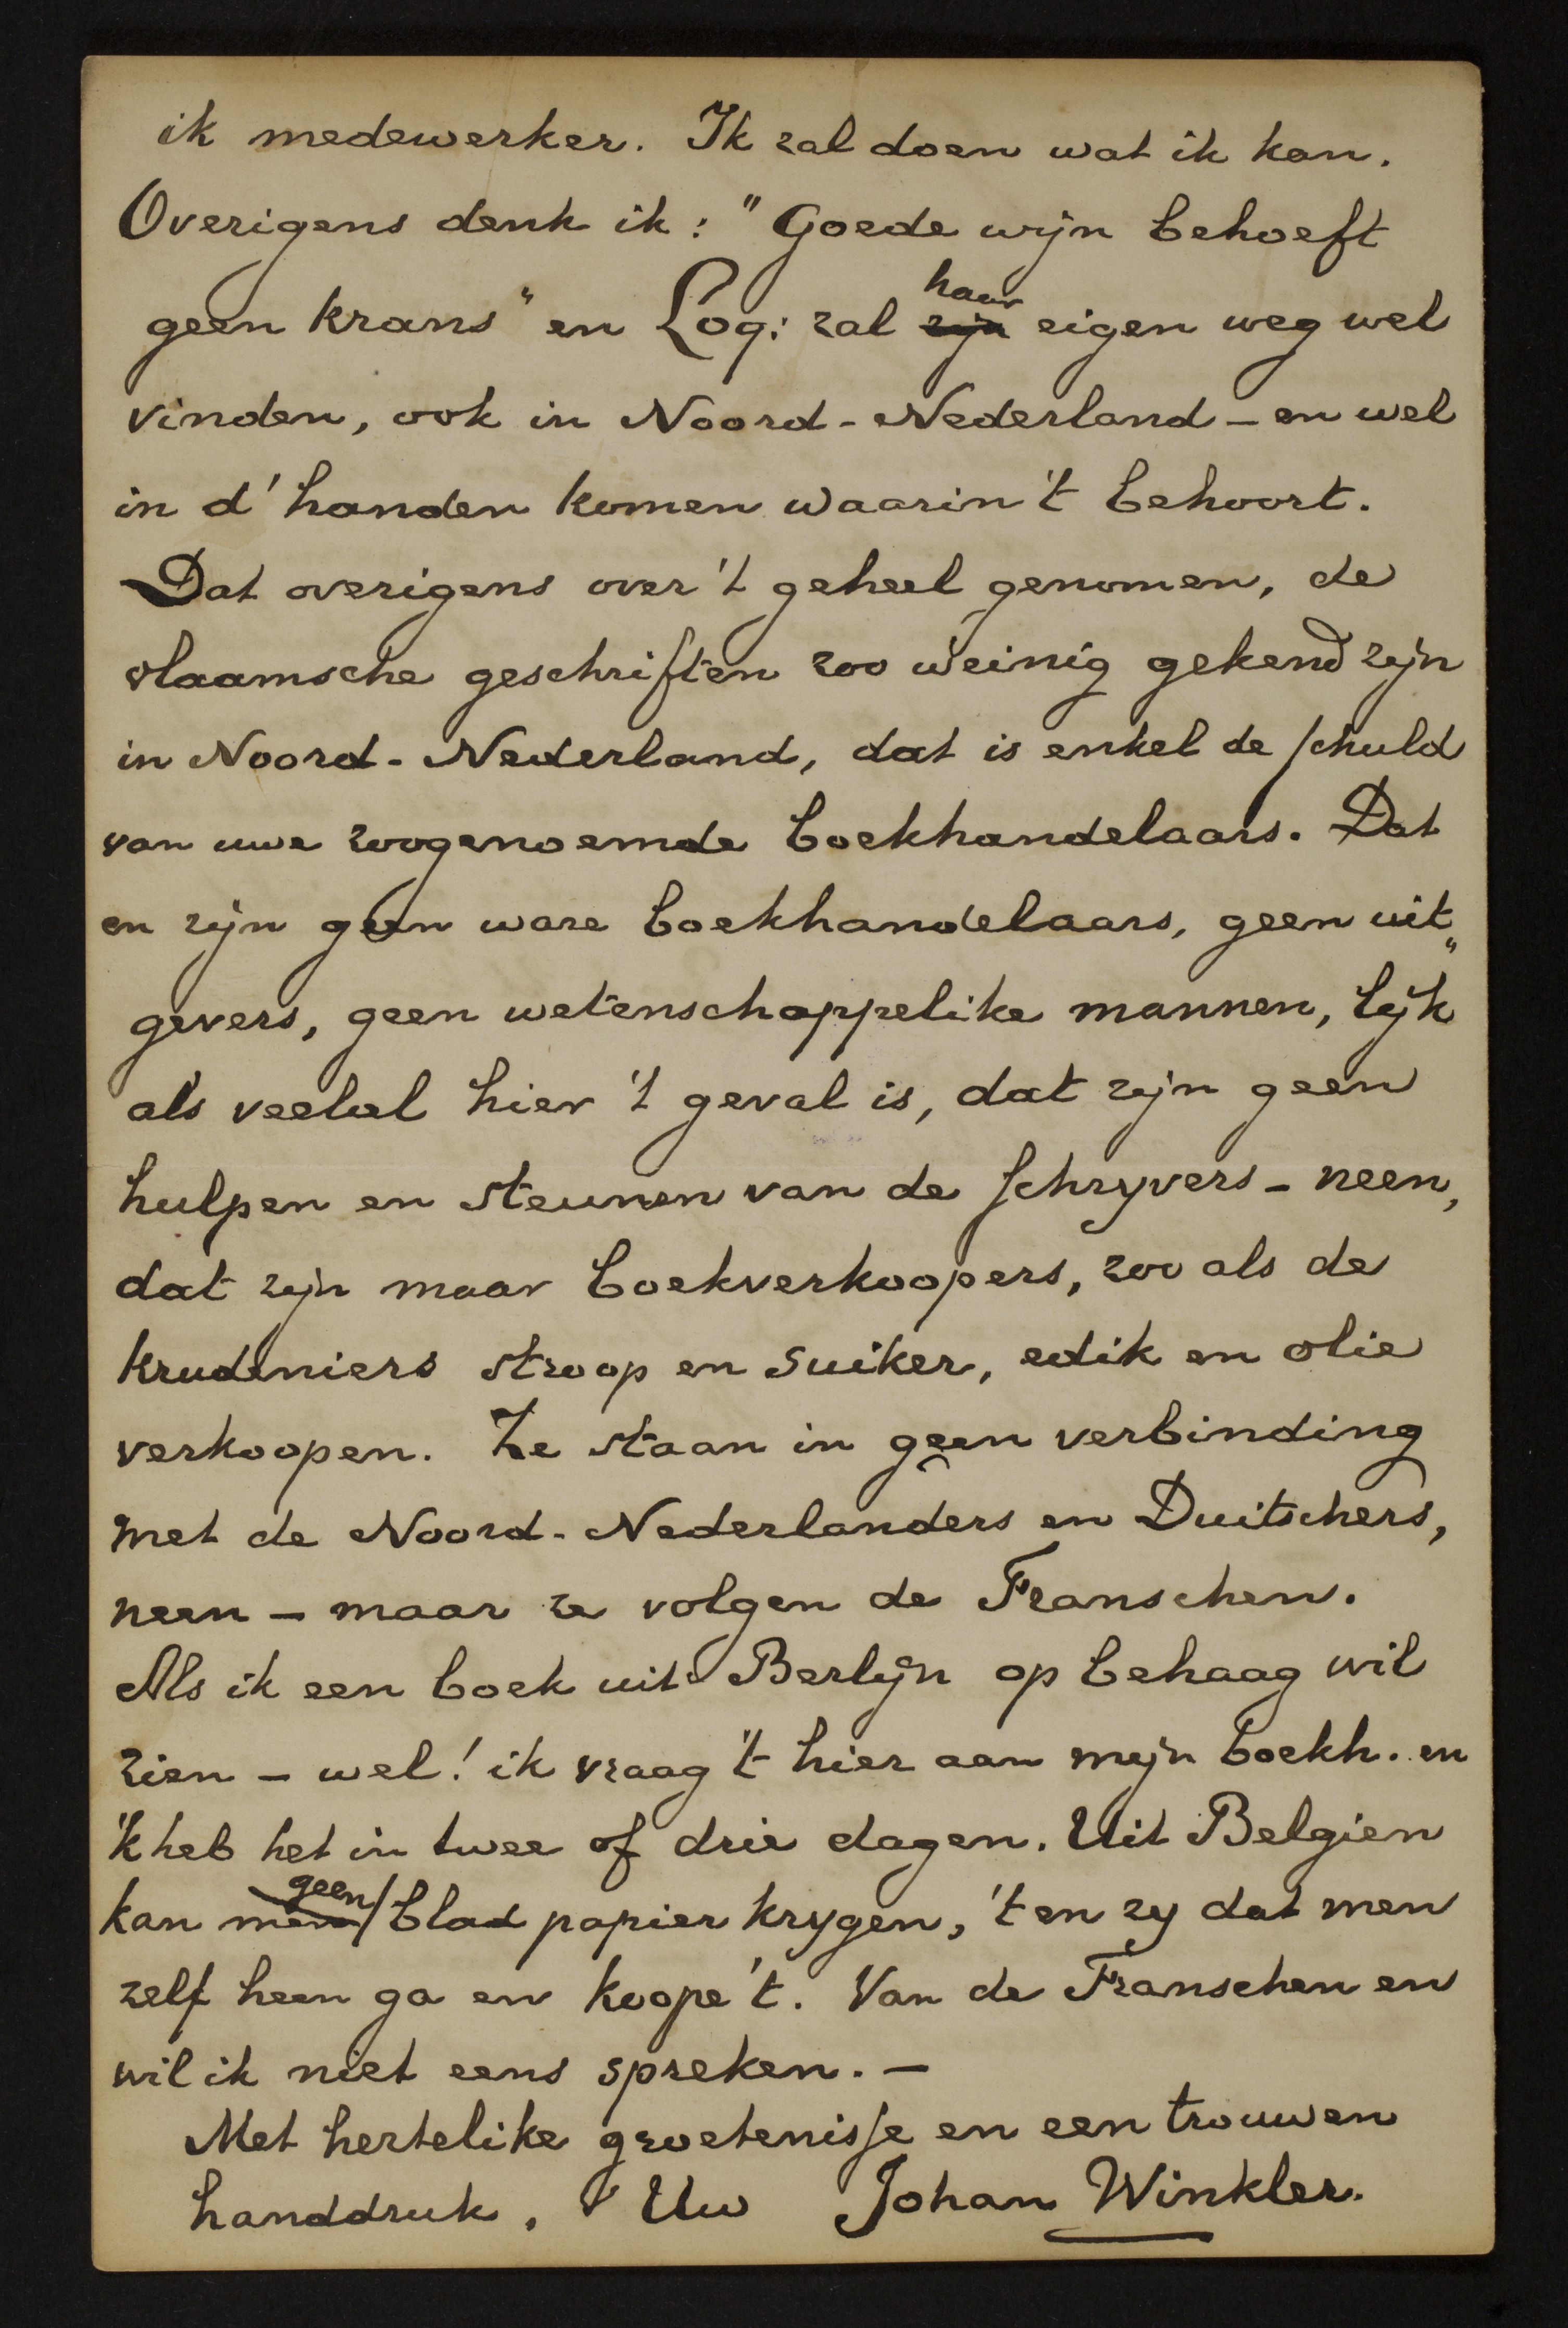 ik medewerker. Ik zal doen wat ik kan.
Overigens denk ik: "Goede wijn behoeft
geen krans" en Loq: zal ~~zijn~~ haar eigen weg wel
vinden, ook in Noord-Nederland – en wel
in d'handen komen waarin 't behoort.
Dat overigens over 't geheel genomen, de
vlaamsche geschriften zoo weinig gekend zijn
in Noord-Nederland, dat is enkel de schuld
van uwe zoogenoemde boekhandelaars. Dat
en zijn geen ware boekhandelaars, geen uit„
gevers, geen wetenschappelike mannen, lijk
als veelal hier 't geval is, dat zijn geen
hulpen en steunen van de schryvers – neen,
dat zijn maar boekverkoopers, zoo als de
krudeniers stroop en suiker, edik en olie
verkoopen. Ze staan in geen verbinding
met de Noord-Nederlanders en Duitschers,
neen – maar ze volgen de Franschen.
Als ik een boek uit Berlijn op behaag wil
zien – wel! ik vraag 't hier aan mijn boekh. en
'k heb het in twee of drie dagen. Uit Belgien
kan ~~men~~ geen blad papier krygen, 't en zy dat men
zelf heen ga en koope 't. Van de Franschen en
wil ik niet eens spreken. –
Met hertelike groetenisse en een trouwen
handdruk, Uw Johan Winkler.